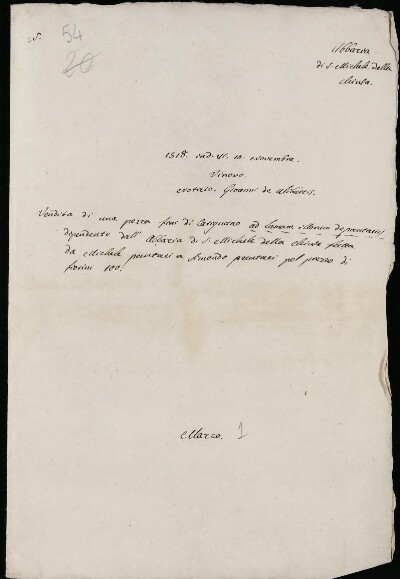 N. 54
20
Abbazia
di S. Michele della
Chiusa.
1518. ind. VI. 10. Novembre.
Vinovo.
Notaio. Giovanni de
Vendita di una pezza fini di Carignano ad
dipendente dall'Abbazia di S. Michele della Chiusa fatta
da Michele a pel prezzo di
fiorini 100.
Marco. 1